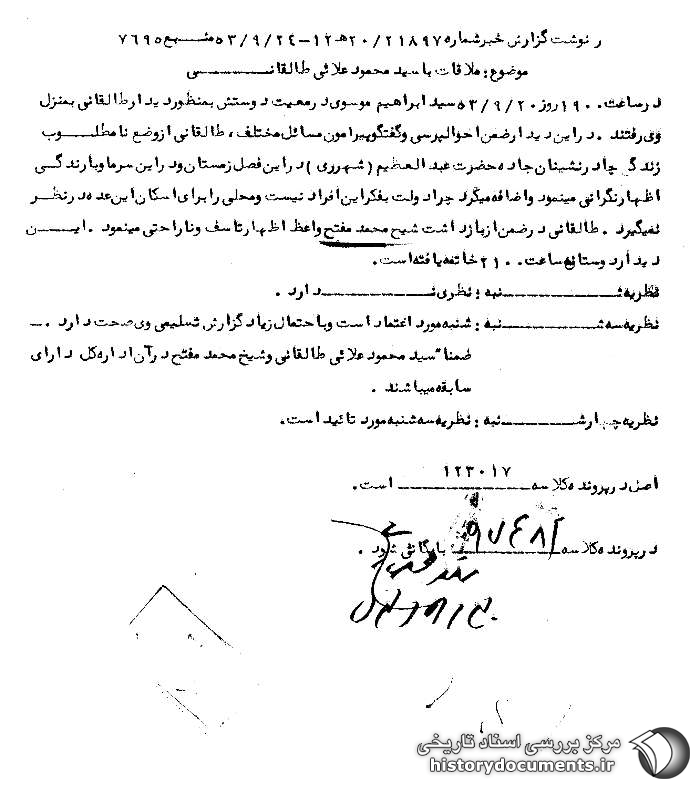 رونوشت گزارش خبر شماره ۲۱۸۹۷/ ۲۰ هـ ۱۲ – ۵۳/۹/۲۴ منبع ۷۶۹۵
موضوع : ملاقات با سید محمود علائی طالقانی
در ساعت ۱۹۰۰ روز ۵۳/۹/۲۰ سید ابراهیم موسوی در معیت دوستش بمنظور دیدار طالقانی بمنزل
وی رفتند . در این دیدار ضمن احوالپرسی و گفتگو پیرامون مسائل مختلف ، طالقانی از وضع نامطلوب
زندگی چادر نشینان جاده حضرت عبدالعظیم ( شهرری ) در این فصل زمستان و در این سرما و بارندگی
اظهار نگرانی مینمود و اضافه میکرد چرا دولت بفکر این افراد نیست و محلی را برای اسکان این عده در نظر
نمیگیرد . طالقانی در ضمن از بازداشت شیخ محمد مفتح واعظ اظهار تاسف و ناراحتی مینمود . این
دیدار دوستانه ساعت ۲۱۰۰ خاتمه یافته است .
نظریه شنبه : نظری ندارد .
نظریه سه شنبه : شنبه مورد اعتماد است و با احتمال زیاد گزارش تسلیمی وی صحت دارد . –
ضمنا" سید محمود علائی طالقانی و شیخ محمد مفتح در آن اداره کل دارای
سابقه میباشند .
نظریه چهارشنبه : نظریه سه شنبه مورد تائید است .
اصل در پرونده کلاسه ۱۲۳۰۱۷ است .
در پرونده کلاسه ۹۷۴۸۲ بایگانی شود .
مرکز بررسی اسناد تاریخی
historydocuments.ir